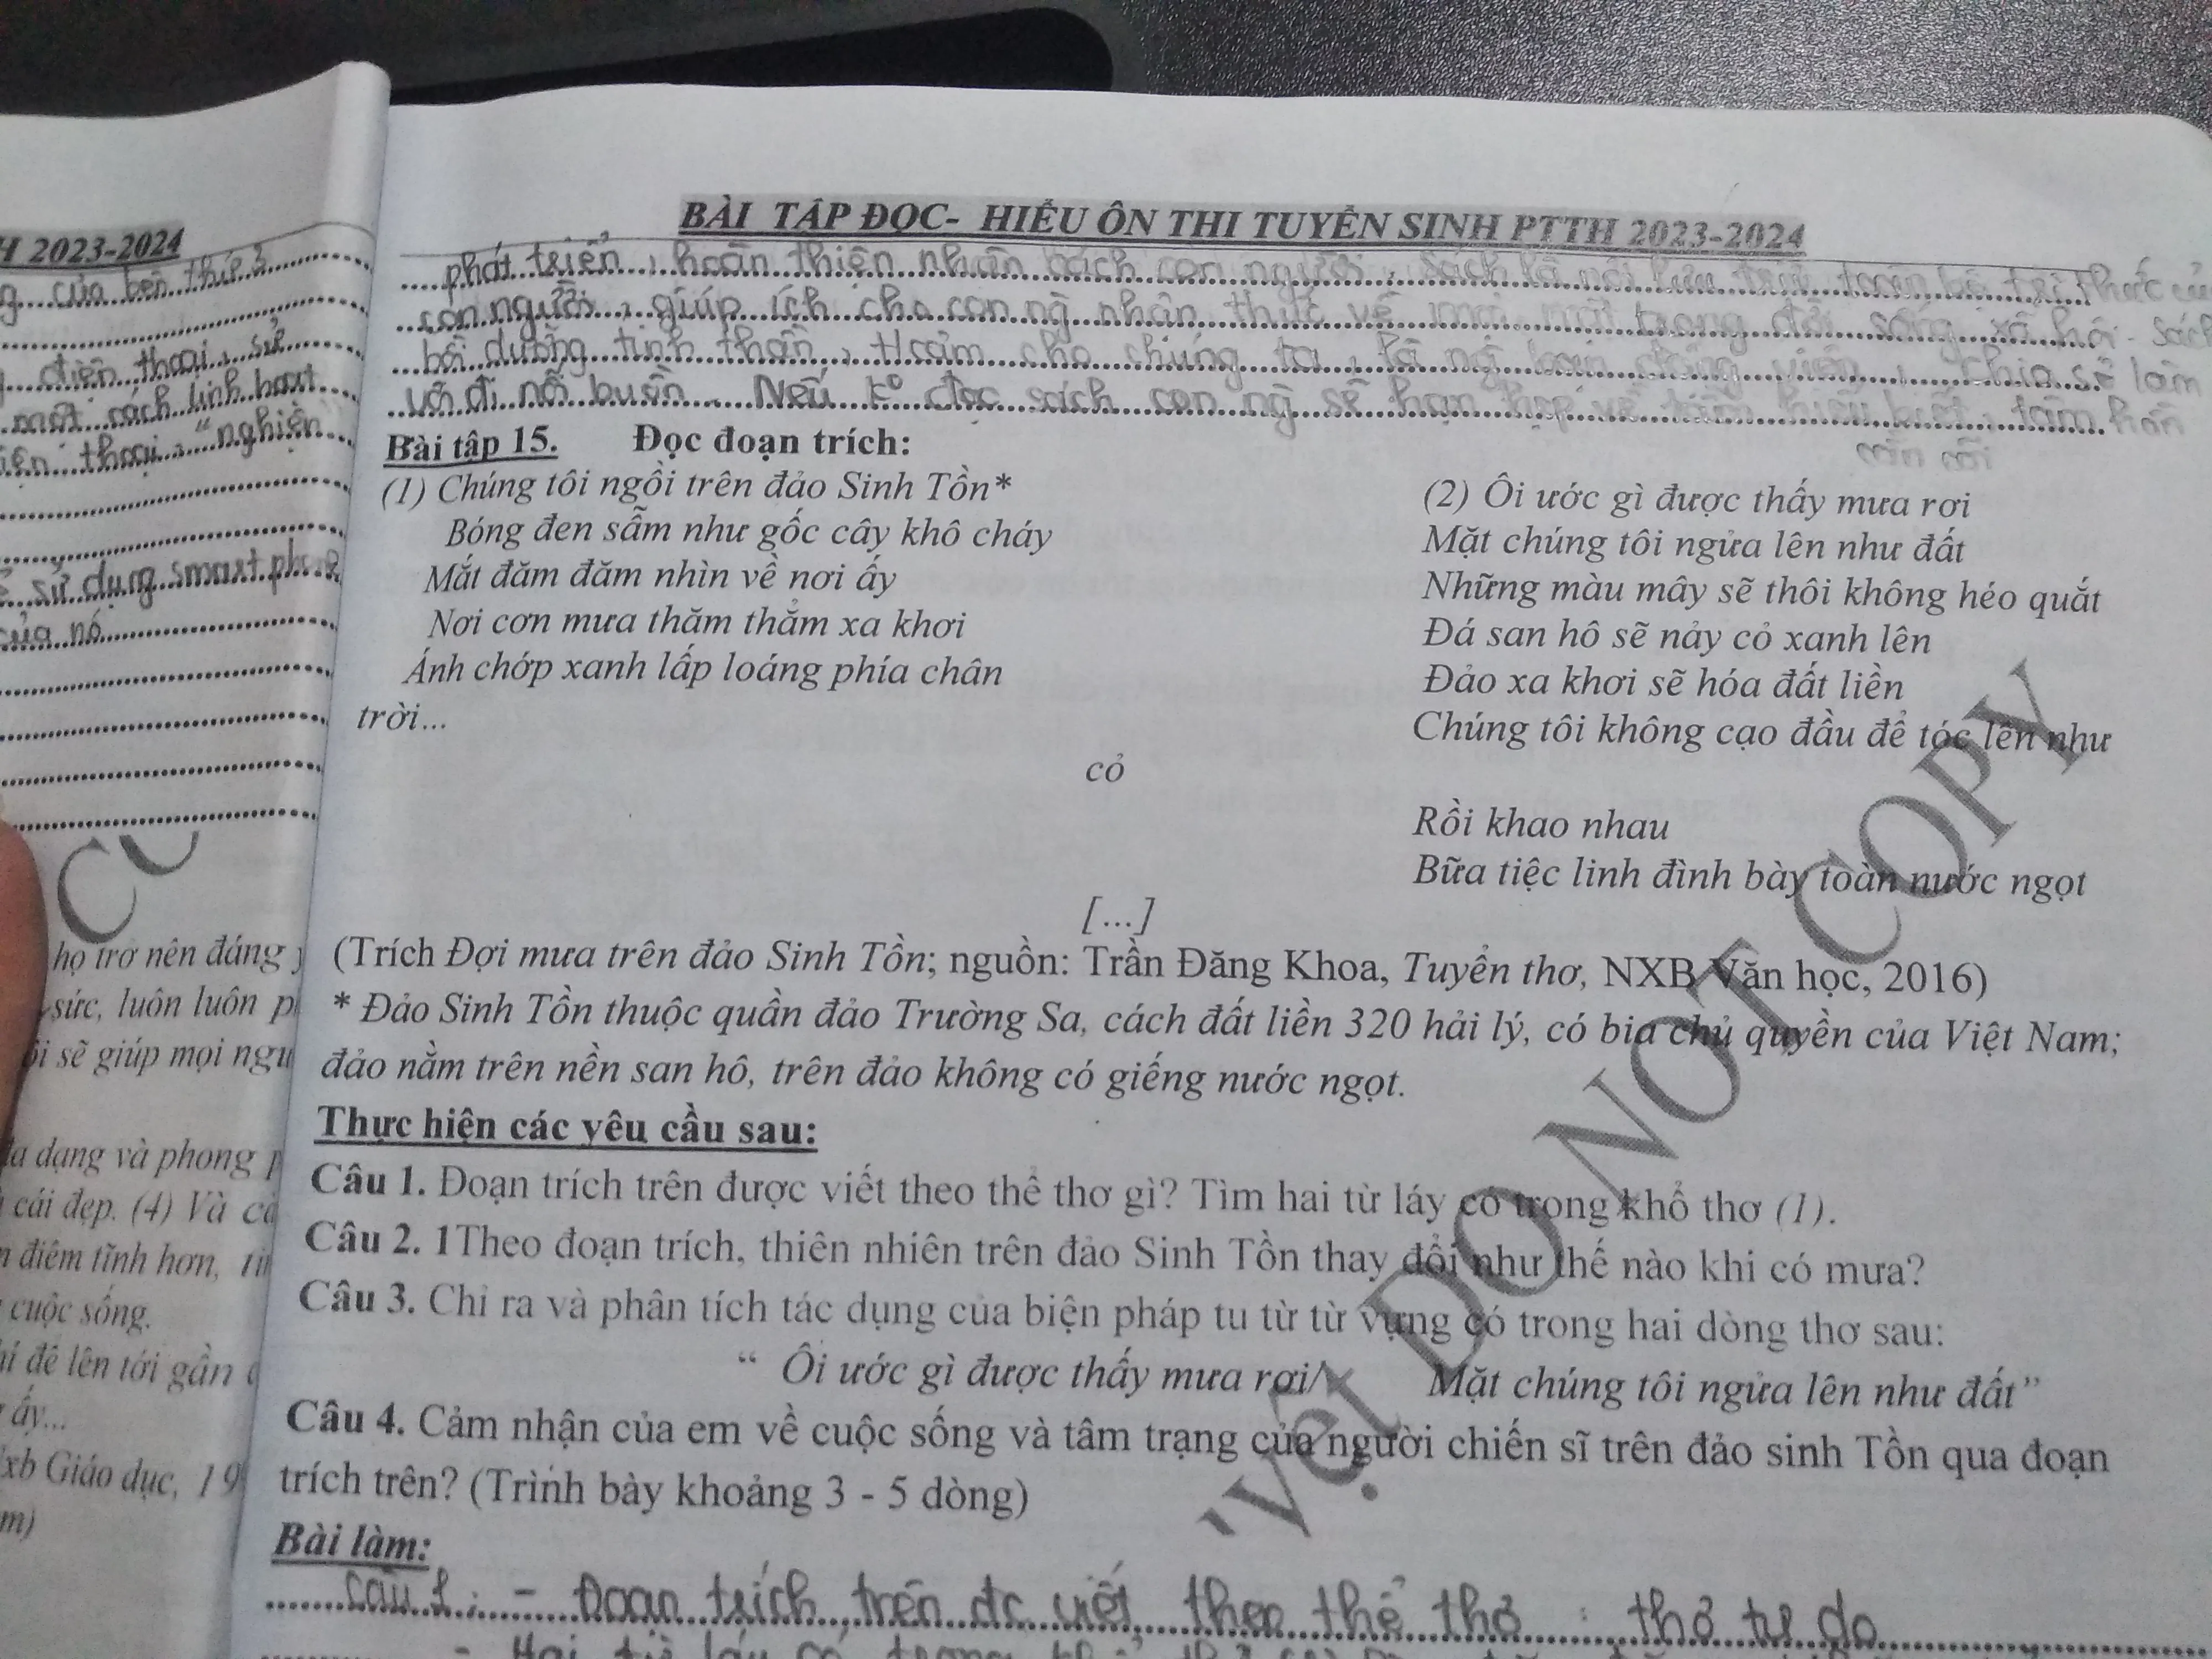 H 2023-2024
của bên thiếp
điện thoại, sử
một cách linh hoạt
thoại, "nghiện
sử dụng smart phone
của nó
họ trở nên đáng
sức, luôn luôn
sẽ giúp mọi
dạng và phong
cái đẹp. (4) Và
điềm tĩnh hơn,
cuộc sống.
đê lên tới gần
ấy...
xb Giáo dục, 19
m)
BÀI TẬP ĐỌC- HIỂU ÔN THI TUYỂN SINH PTTH 2023-2024
phát triển, hoàn thiện nhân cách con người, sách là nơi lưu trữ toàn bộ tri thức
con người, giúp ích cho con ng nhận thức về mọi mặt trong đời sống xã hội. Sách
bồi dưỡng tinh thần, t cảm cho chúng ta, là ng bạn động viên, chia sẻ làm
vơi đi nỗi buồn. Nếu k° đọc sách con ng sẽ hạn hẹp về tầm hiểu biết, tâm hồn
cằn cỗi
Bài tập 15. Đọc đoạn trích:
(1) Chúng tôi ngồi trên đảo Sinh Tồn*
Bóng đen sẫm như gốc cây khô cháy
Mắt đăm đăm nhìn về nơi ấy
Nơi cơn mưa thăm thẳm xa khơi
Ánh chớp xanh lấp loáng phía chân
trời...
(2) Ôi ước gì được thấy mưa rơi
Mặt chúng tôi ngửa lên như đất
Những màu mây sẽ thôi không héo quắt
Đá san hô sẽ nảy cỏ xanh lên
Đảo xa khơi sẽ hóa đất liền
Chúng tôi không cạo đầu để tóc lên như
cỏ
Rồi khao nhau
Bữa tiệc linh đình bày toàn nước ngọt
[...]
(Trích Đợi mưa trên đảo Sinh Tồn; nguồn: Trần Đăng Khoa, Tuyển thơ, NXB Văn học, 2016)
* Đảo Sinh Tồn thuộc quần đảo Trường Sa, cách đất liền 320 hải lý, có bia chủ quyền của Việt Nam;
đảo nằm trên nền san hô, trên đảo không có giếng nước ngọt.
Thực hiện các yêu cầu sau:
Câu 1. Đoạn trích trên được viết theo thể thơ gì? Tìm hai từ láy có trong khổ thơ (1).
Câu 2. 1Theo đoạn trích, thiên nhiên trên đảo Sinh Tồn thay đổi như thế nào khi có mưa?
Câu 3. Chỉ ra và phân tích tác dụng của biện pháp tu từ từ vựng có trong hai dòng thơ sau:
“ Ôi ước gì được thấy mưa rơi/ Mặt chúng tôi ngửa lên như đất”
Câu 4. Cảm nhận của em về cuộc sống và tâm trạng của người chiến sĩ trên đảo sinh Tồn qua đoạn
trích trên? (Trình bày khoảng 3 - 5 dòng)
Bài làm:
Câu 1: - Đoạn trích trên đc viết theo thể thơ : thơ tự do
- Hai từ láy có trong
DO NOT COPY